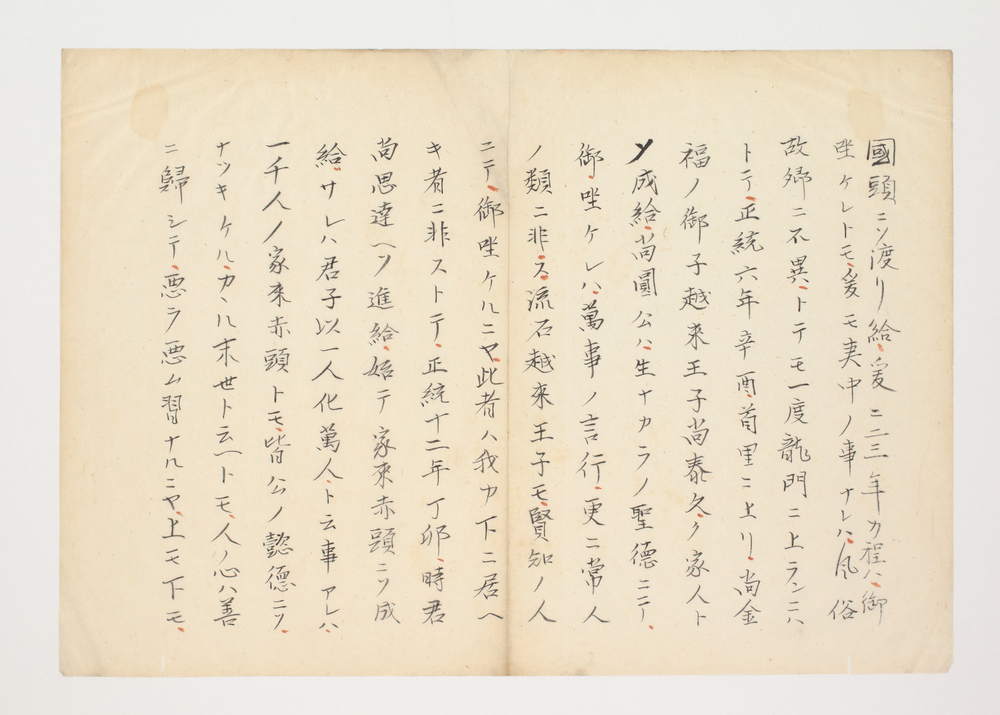 國頭ニソ渡リ給、爰ニ二三年カ程ハ、御
坐ケレトモ、爰モ夷中ノ事ナレハ、風俗
故郷ニ不異、トテモ一度龍門ニ上ランニハ
トテ、正統六年辛酉、首里ニ上リ、尚金
福ノ御子越來王子尚泰久ク家人ト
ソ成給、尚圓公ハ、生ナカラノ聖德ニテ、
御坐ケレハ、萬事ノ言行、更ニ常人
ノ類ニ非ス、流石越來王子モ、賢知ノ人
ニテ、御坐ケルニヤ、此者ハ我カ下ニ居ヘ
キ者ニ非ストテ、正統十二年丁卯、時君
尚思達ヘソ進給、始テ家來赤頭ニソ成
給、サレハ君子以一人化萬人、ト云事アレハ、
一千人ノ家來赤頭トモ、皆公ノ懿德ニソ、
ナツキケル、カヽル末世ト云ヘトモ、人ノ心ハ善
ニ歸シテ、悪ヲ悪ム習ナルニヤ、上モ下モ、